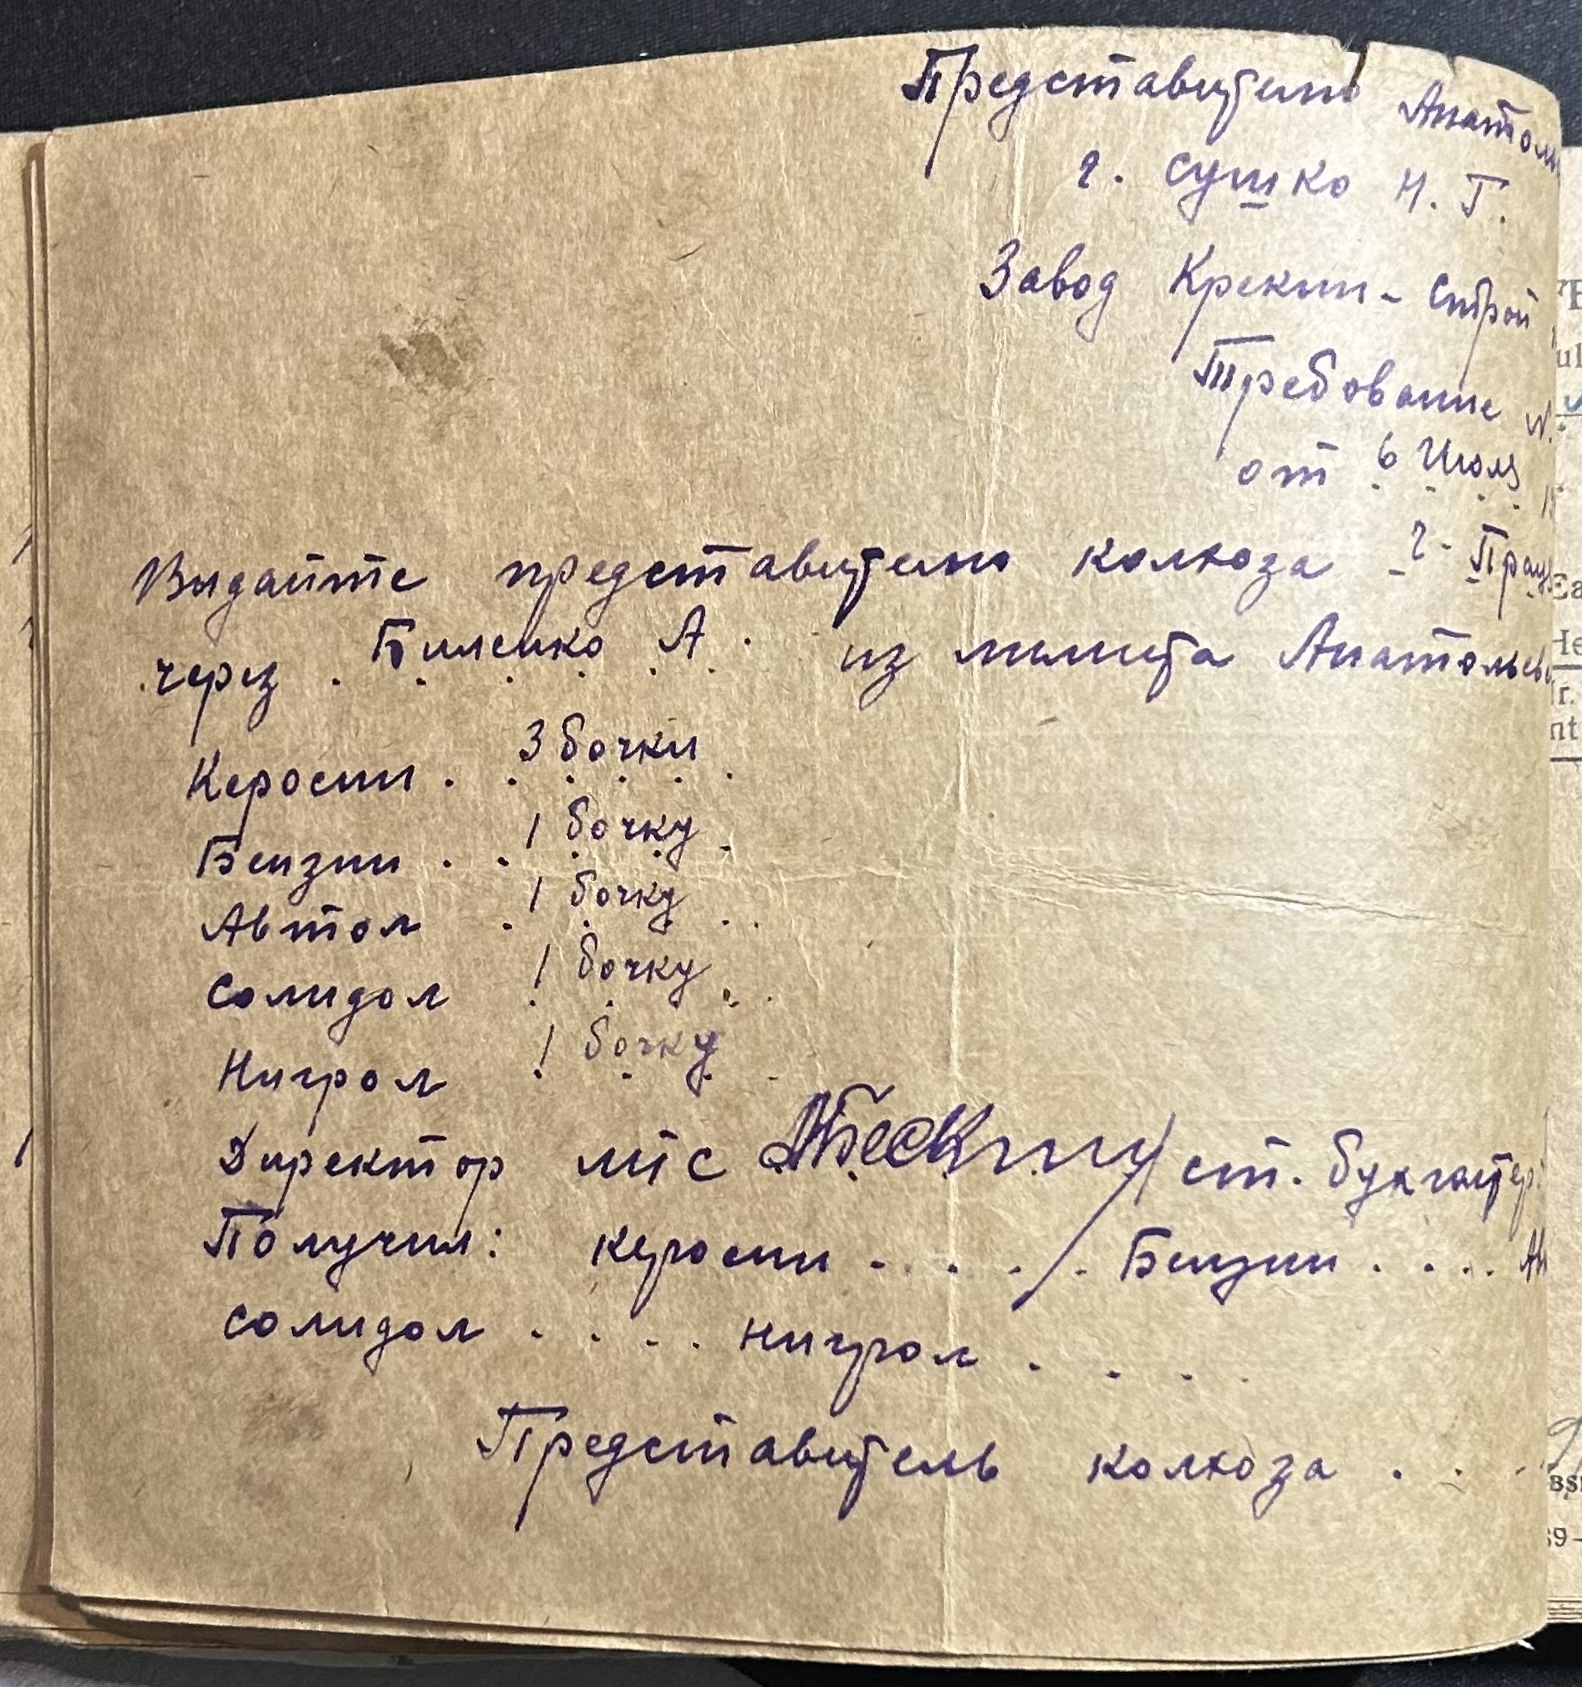 Представителю Анатоль
г. Сушко Н. Г.
Завод Крекин-Строй
Требование №
от 6 Июля
Выдайте представителю колхоза г. Прав
через Биленко А. из лимита Анатольев
Керосин . . 3 бочки .
Бензин . . 1 бочку .
Автол . 1 бочку . .
Солидол 1 бочку . .
Нигрол 1 бочку .
Директор мтс ст. бухгалтер
Получил: керосин . . . . . Бензин . . . . Ав
солидол . . . . нигрол . . . .
Представитель колхоза . . .